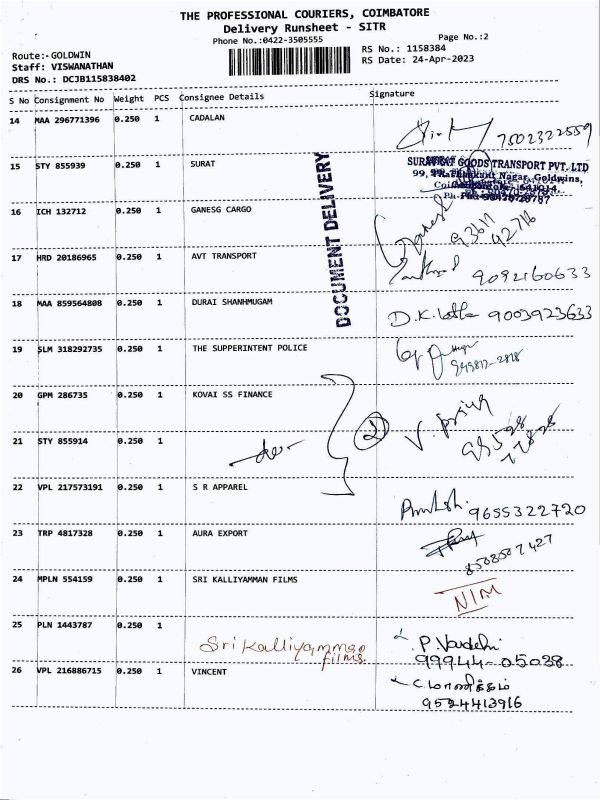 THE PROFESSIONAL COURIERS, COIMBATORE
Delivery Runsheet - SITR
Phone No.:0422-3505555
Page No.:2
Route:-GOLDWIN
RS No.: 1158384
Staff: VISWANATHAN
RS Date: 24-Apr-2023
DRS No.: DCJB115838402
S No Consignment No Weight PCS Consignee Details Signature
14 MAA 296771396 0.250 1 CADALAN
7502322559
15 STY 855939 0.250 1 SURAT
SURAT GOODS TRANSPORT PVT. LTD
99, Nagar, Goldwins,
DOCUMENT DELIVERY
16 ICH 132712 0.250 1 GANESG CARGO
Ganesh
93611
42716
17 HRD 20186965 1 AVT TRANSPORT
0.250
9092160633
18 MAA 859564808 0.250 1 DURAI SHANHMUGAM
D.K. Latha 9003923633
19 SLM 318292735 0.250 1 THE SUPPERINTENT POLICE
20 GPM 286735 0.250 1 KOVAI SS FINANCE
2
V. priya
21 STY 855914 0.250 1
-do-
22 VPL 217573191 0.250 1 S R APPAREL
9655322720
23 TRP 4817328 0.250 1 AURA EXPORT
24 MPLN 554159 0.250 1 SRI KALLIYAMMAN FILMS
NIM
25 PLN 1443787 0.250 1
Sri Kalliyamman
films.
P. Vaudehi
99944-05028
26 VPL 216886715 0.250 1 VINCENT
9524413916